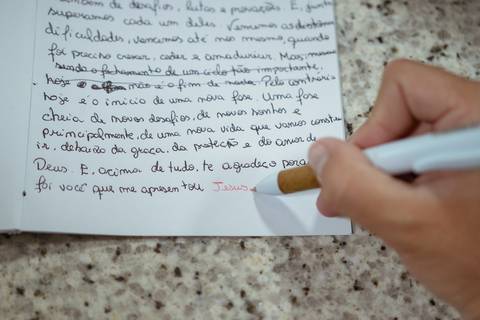 também de desafios, lutas e provações. E, juntos
superamos cada um deles. Vencemos as
dificuldades, vencemos até nós mesmo, quando
foi preciso crescer, ceder e amadurecer. Mas,
sendo o fechamento de um ciclo tão importante,
hoje não é o fim de nada. Pelo contrário
hoje é o início de uma nova fase. Uma fase
cheia de novos desafios, de novos sonhos e
principalmente, de uma nova vida que vamos constru
ir, debaixo da graça, da proteção e do amor de
Deus. E, acima de tudo, te agradeço por
foi você que me apresentou Jesus.